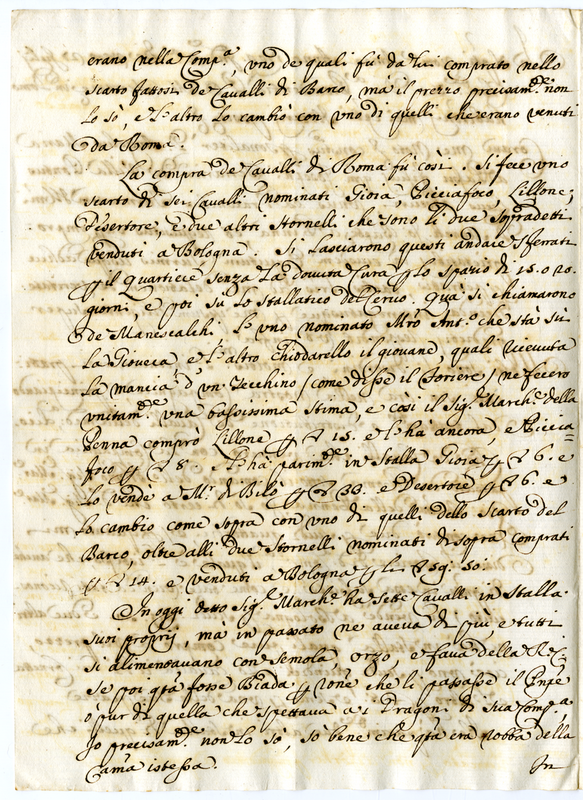 erano nella Comp.a, uno de quali fù da lui comprato nello
scarto fattosi de Cavalli di Barco, mà il prezzo precisam.te non
lo sò, e l'altro lo cambiò con uno di quelli che erano venuti
da Roma.
La compra de Cavalli di Roma fù così. Si fece uno
scarto di sei Cavalli nominati Gioia, Picciafoco, Lillone,
Desertore, e due altri Stornelli che sono li due sopradetti
venduti a Bologna. Si lasciarono questi andare sferrati
p il Quartiere senza la dovuta Cura p lo spazio di 15. o 20.
giorni, e poi su lo stallatico del Cervo. Quà si chiamarono
de Manescalchi l'uno nominato Mro Ant.o che stà sù
la Giovecca, e l'altro Chiodarello il giovane, quali ricevuta
la mancia d'un Zecchino / come disse il Foriere / ne fecero
unitam.te una bassissima stima, e così il Sig.r March.e della
Penna comprò Lillone p 15. e l'hà ancora, e Piccia=
foco p 8. hà parim.te in Stalla Gioia p 6. e
lo vendè a Mr. di Bilò p 33. e Desertore p 6. e
lo cambiò come sopra con uno di quelli dello scarto del
Barco, oltre alli due Stornelli nominati di sopra comprati
p 14. e venduti a Bologna p li 59. 50.
In oggi detto Sig.r March.e ha sette Cavalli in Stalla
suoi proprij, mà in passato ne aveva di più, e tutti
si alimentavano con semola, orzo, e fava della R.C.
Se poi qta fosse Biada p che li passasse il
ò pur di quella che spettava a i Dragoni di sua Comp.a
Io precisam.te non lo sò, sò bene che qta era robba della
Cam.a istessa.
In